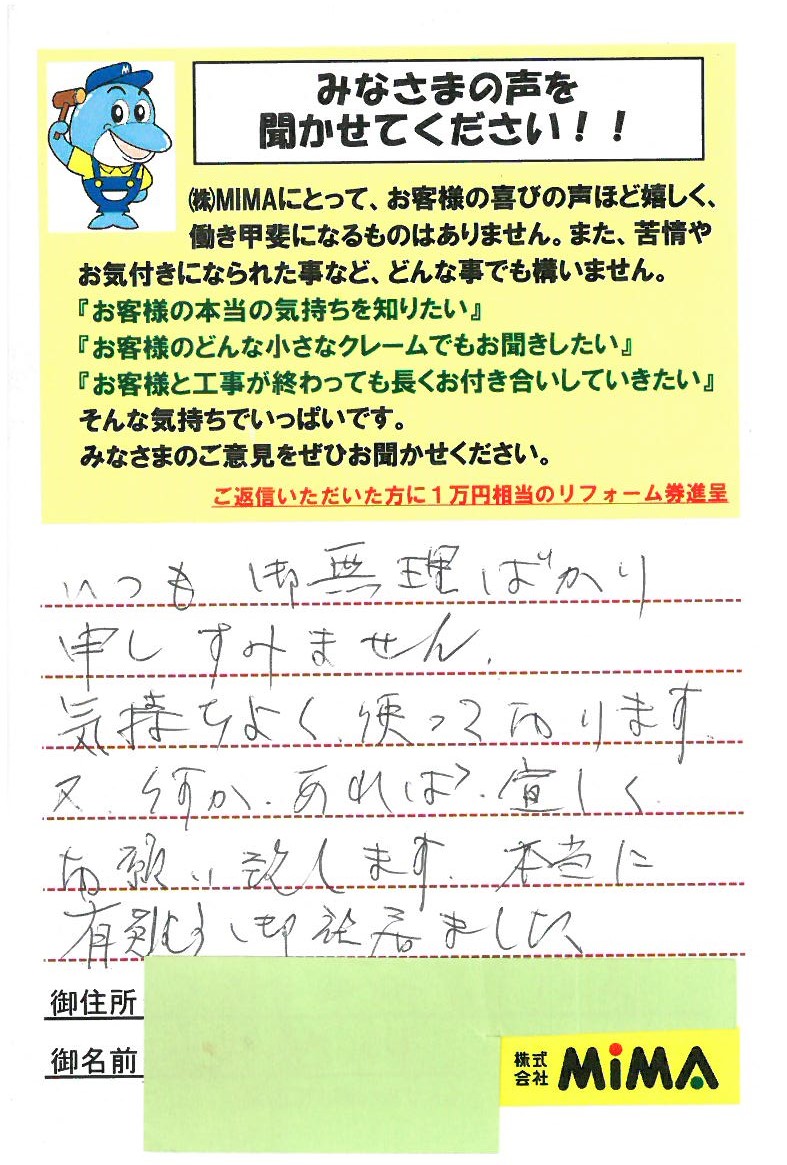 M
みなさまの声を
聞かせてください！！
㈱MIMAにとって、お客様の喜びの声ほど嬉しく、
働き甲斐になるものはありません。また、苦情や
お気付きになられた事など、どんな事でも構いません。
『お客様の本当の気持ちを知りたい』
『お客様のどんな小さなクレームでもお聞きしたい』
『お客様と工事が終わっても長くお付き合いしていきたい』
そんな気持ちでいっぱいです。
みなさまのご意見をぜひお聞かせください。
ご返信いただいた方に１万円相当のリフォーム券進呈
いつも御無理ばかり
申しすみません.
気持ちよく、使って おります.
又、何か、あれば、宜しく
お願い致します. 本当に
有難う御祉居ました
御住所
御名前
株式会社 MiMA